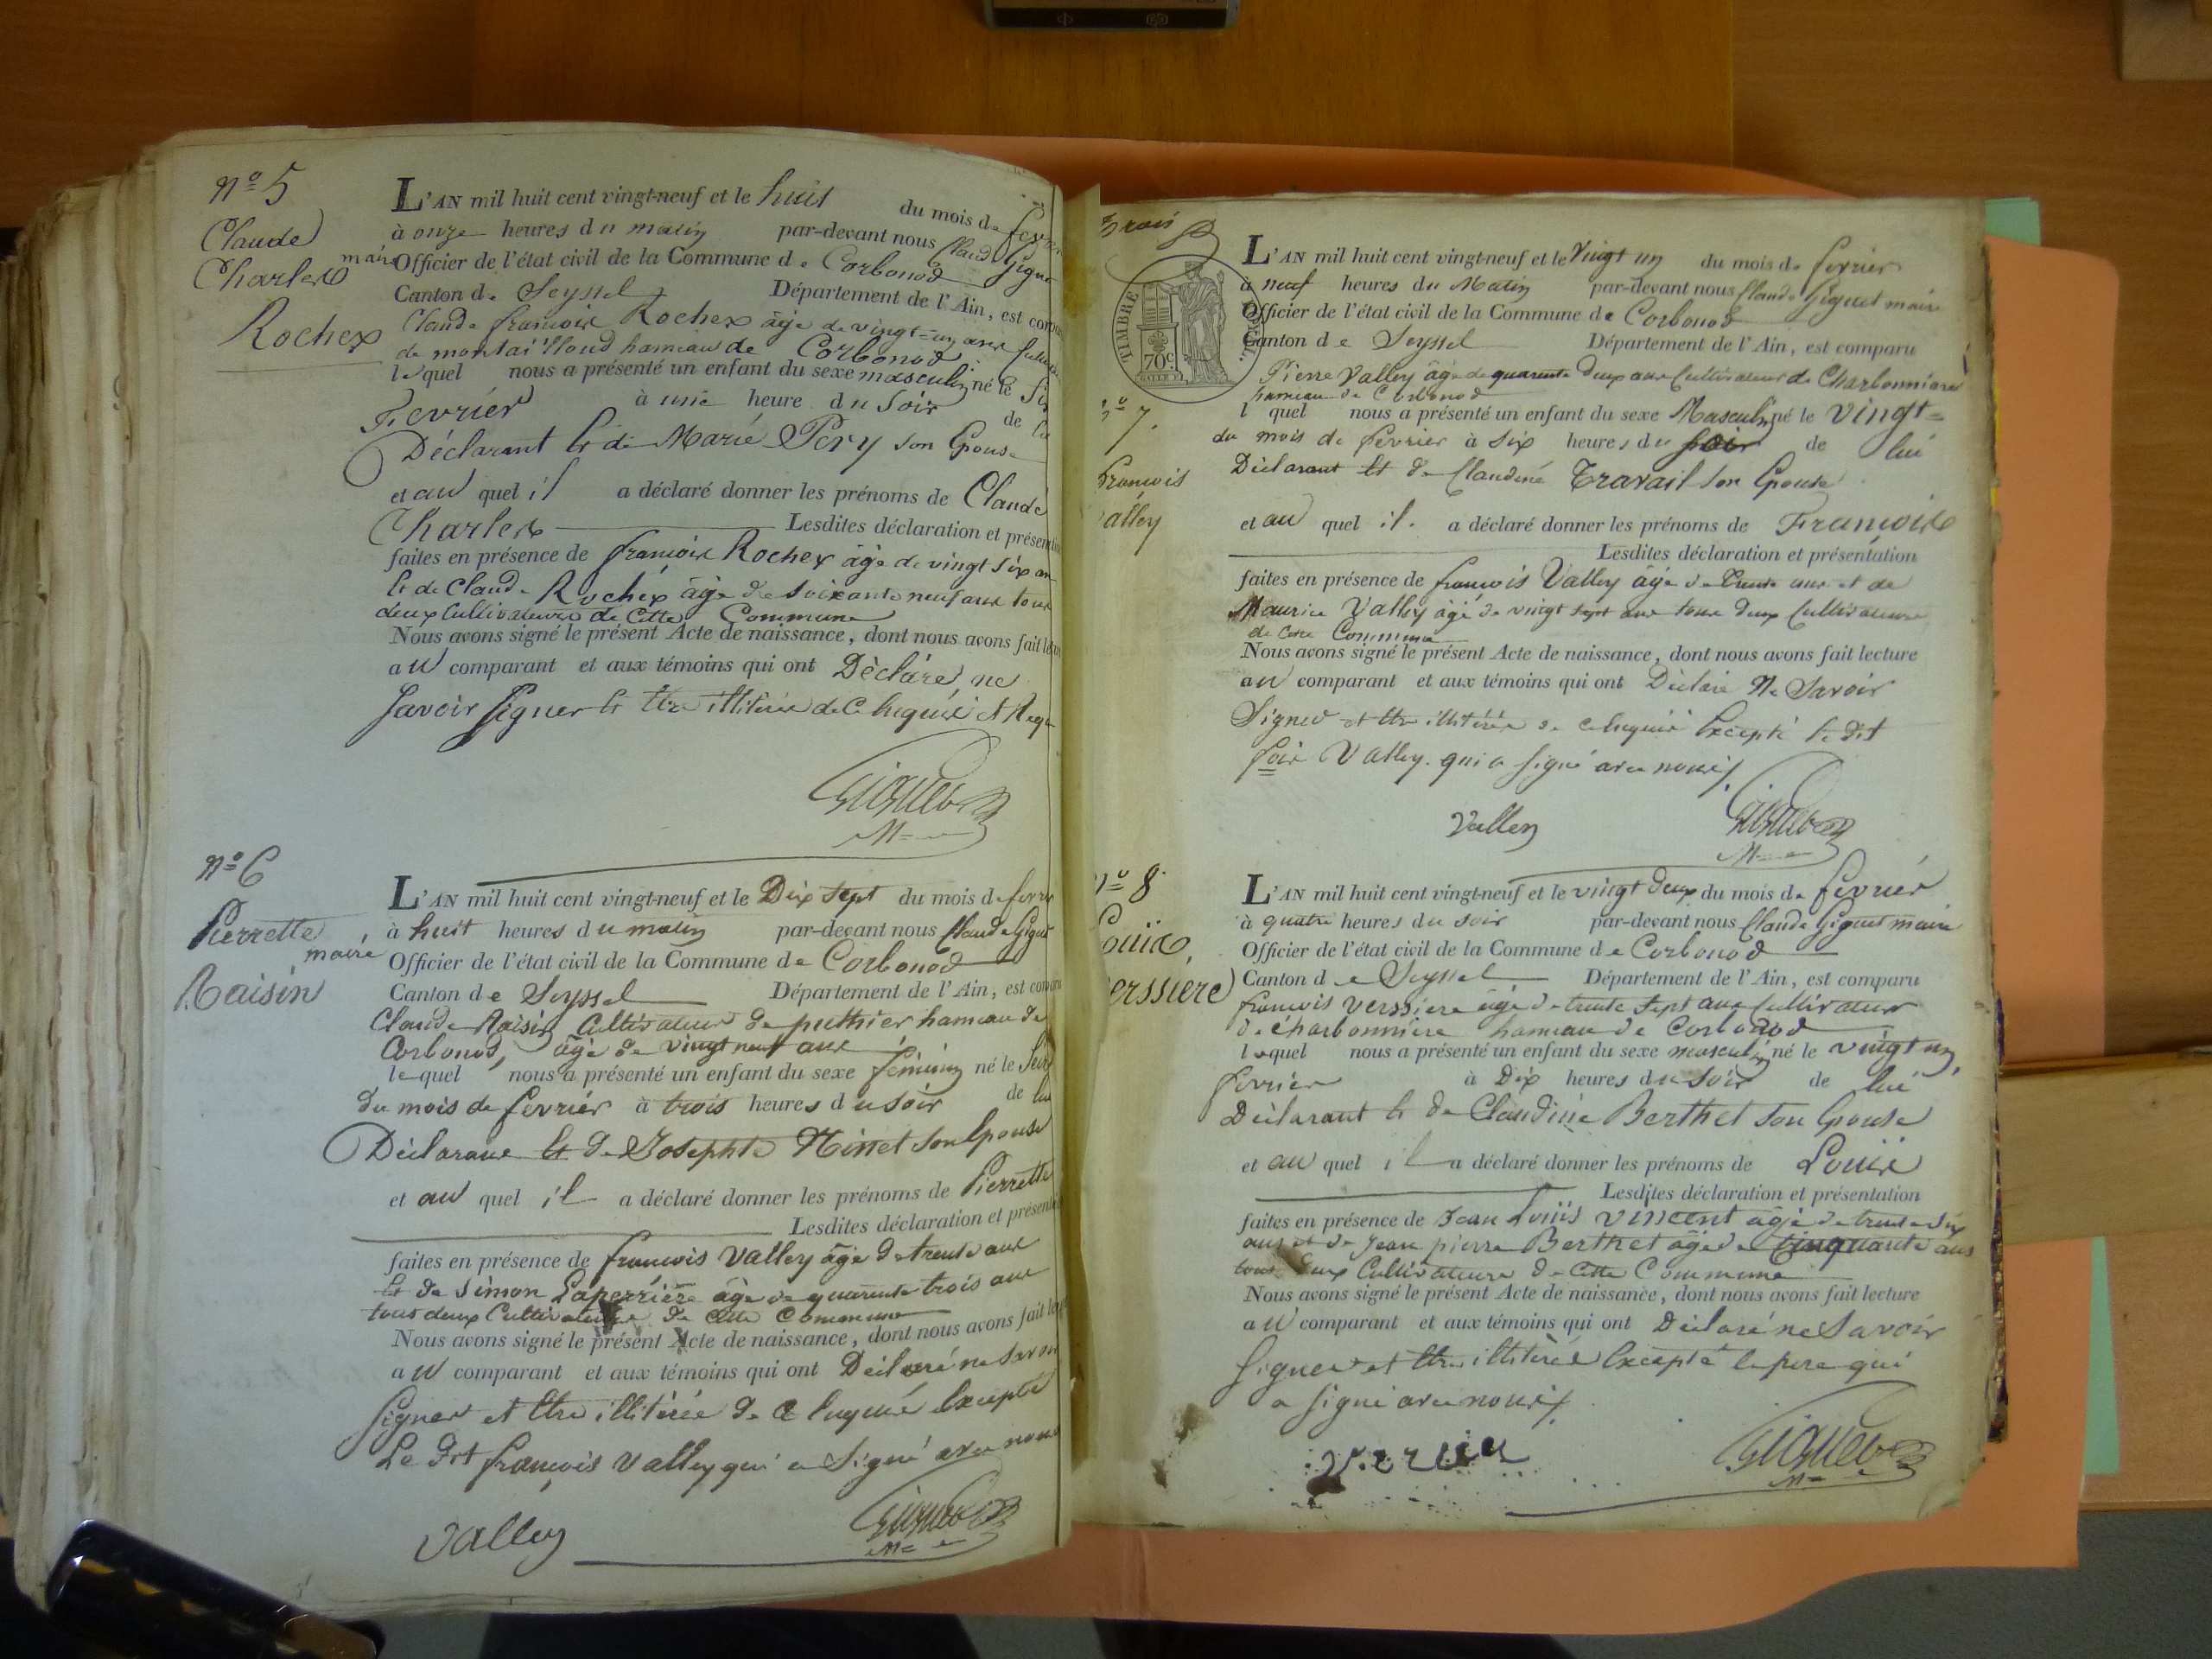 N° 5
Claude
Charles
Rochex
L'AN mil huit cent vingt-neuf et le huit du mois de
à onze heures du matin par-devant nous Claude
maire Officier de l'état civil de la Commune de Corbonod
Canton de Seyssel Département de l'Ain, est
Claude francois Rochex âgé de vingt-un ans
de montaillloud hameau de Corbonod
lequel nous a présenté un enfant du sexe masculin né le
Fevrier à une heure du soir de
Déclarant Et de Marie Pery son Epouse
et au quel il a déclaré donner les prénoms de Claude
Charles Lesdites déclaration et
faites en présence de francois Rochex âgé de vingt six
Et de Claude Rochex âgé de soixante neuf ans tous
deux Cultivateurs de Cette Commune
Nous avons signé le présent Acte de naissance, dont nous avons fait
au comparant et aux témoins qui ont Déclaré ne
Savoir Signer Et Etre illiterés de Ce Enquis Et
N° 6
Pierrette
Raisin
L'AN mil huit cent vingt-neuf et le Dix sept du mois de
à huit heures du matin par-devant nous Claude
maire Officier de l'état civil de la Commune de Corbonod
Canton de Seyssel Département de l'Ain, est
Claude Raisin Cultivateur de puthier hameau de
Corbonod, âgé de vingt neuf ans
lequel nous a présenté un enfant du sexe féminin né le
du mois de fevrier à trois heures du soir de
Déclarant Et de Josephte Ninet son Epouse
et au quel il a déclaré donner les prénoms de Pierrette
Lesdites déclaration et
faites en présence de francois Valley âgé de trente ans
Et de Simon Laperrière âgé de quarente trois ans
tous deux Cultivateurs de Cette Commune
Nous avons signé le présent Acte de naissance, dont nous avons fait
au comparant et aux témoins qui ont Déclaré ne Savoir
Signer et Etre illiterés de Ce Enquis Excepté
Le dit francois Valley qui a Signé avec nous
Valley
TIMBRE
70c.
L'AN mil huit cent vingt-neuf et le Vingt un du mois de fevrier
à neuf heures du Matin par-devant nous Claude Giguet maire
Officier de l'état civil de la Commune de Corbonod
Canton de Seyssel Département de l'Ain, est comparu
Pierre Valley âgé de quarente deux ans Cultivateur de Charbonniere
hameau de Corbonod
7.
l quel nous a présenté un enfant du sexe Masculin né le vingt=
du mois de fevrier à six heures du soir de lui
Déclarant Et de Claudine Travail son Epouse
et au quel il a déclaré donner les prénoms de Francois
Lesdites déclaration et présentation
faites en présence de francois Valley âgé de trente ans et de
Maurice Valley âgé de vingt sept ans tous deux Cultivateurs
de Cette Commune
Nous avons signé le présent Acte de naissance, dont nous avons fait lecture
au comparant et aux témoins qui ont Déclaré Ne Savoir
Signer et Etre illiterés de Ce Enquis Excepté le dit
fois Valley qui a signé avec nous
Valley
N° 8
L'AN mil huit cent vingt-neuf et le vingt deux du mois de fevrier
à quatre heures du soir par-devant nous Claude Giguet maire
Officier de l'état civil de la Commune de Corbonod
Canton de Seyssel Département de l'Ain, est comparu
francois Verssiere âgé de trente sept ans Cultivateur
de charbonniere hameau de Corbonod
lequel nous a présenté un enfant du sexe masculin né le vingt un
fevrier à Dix heures du soir de lui
Déclarant Et de Claudine Berthet son Epouse
et au quel il a déclaré donner les prénoms de Louis
Lesdites déclaration et présentation
faites en présence de Jean Louis Vincent âgé de trente six
ans et de Jean pierre Berthet âgé de Cinquante ans
tous deux Cultivateurs de Cette Commune
Nous avons signé le présent Acte de naissance, dont nous avons fait lecture
au comparant et aux témoins qui ont Déclaré ne Savoir
Signer et Etre illiterés Excepté le pere qui
a Signé avec nous